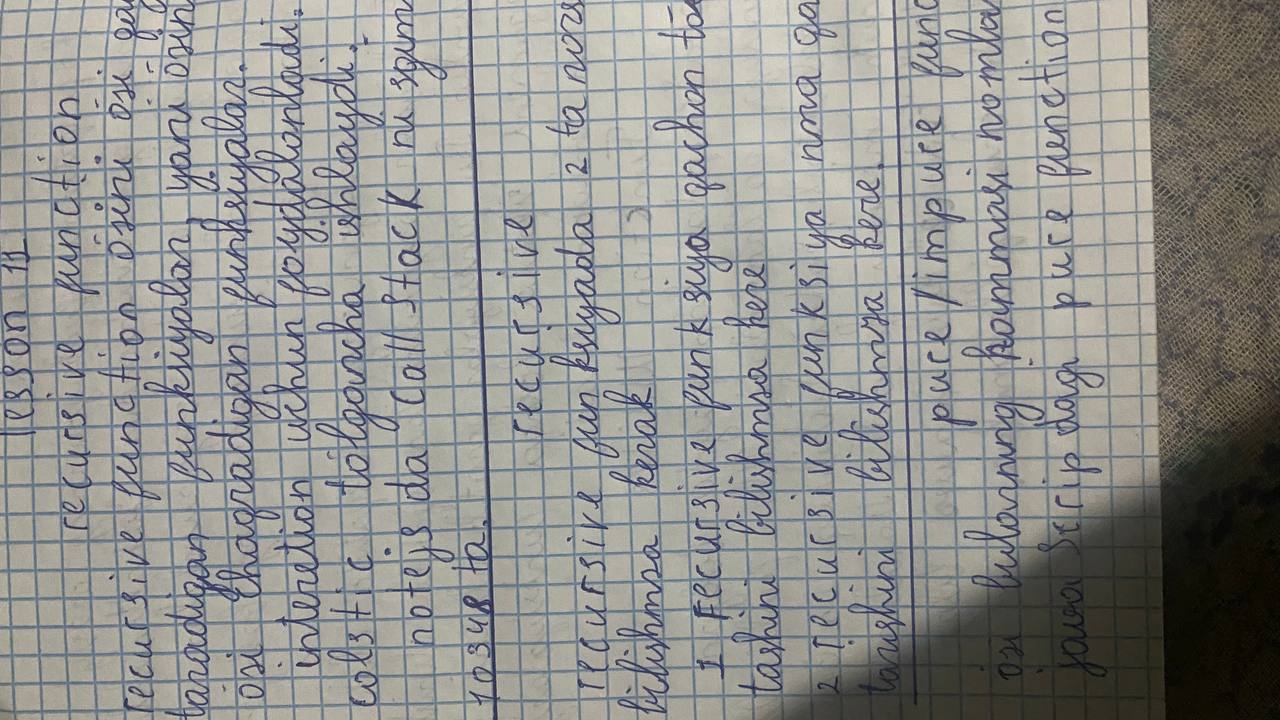 lesson 11
recursive function
recursive function ozini ozi
taradigan funksiyalar yani ozin
ozi Chaqradigan funksiyalar.
interetion uchun foydalanladi.
colstic tologoncha ishlaydi.
notejs da Call Stack ni
10348 ta.
recursive
recursive funksiyada 2 ta nors
bilishmza kerak
1 recursive funksiya qachon to
tashini bilishmza kere
2 recursive funksiya nma qa
tarishini bilishmza kere.
pure/impure func
ozi bularning hammasi nomla
java Scrip dagi pure function